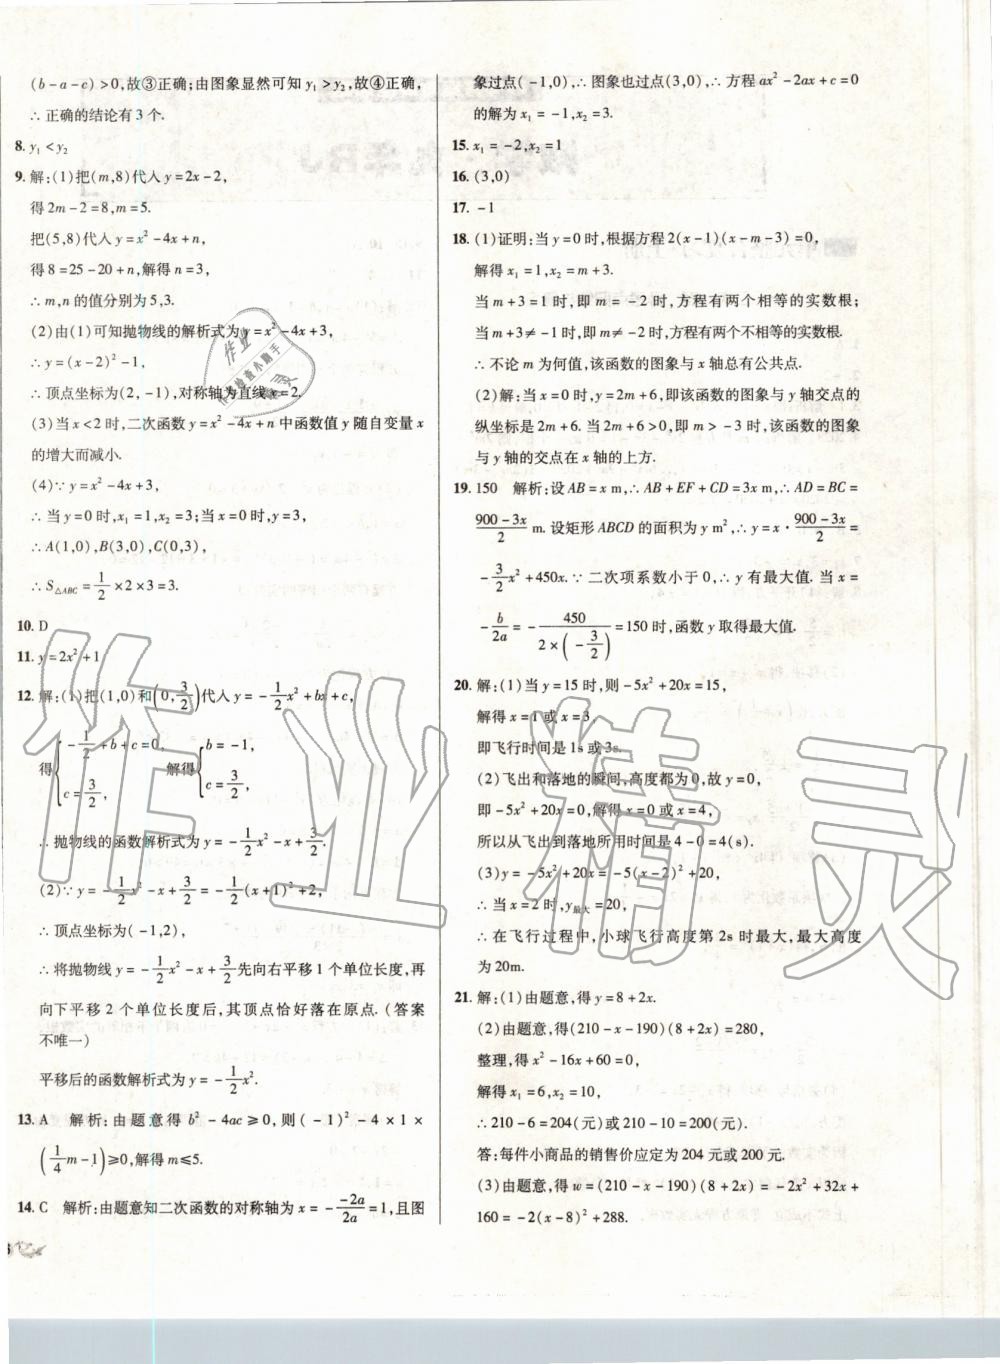 (b-a-c)>0,故③正确;由图象显然可知 y₁>y₂,故④正确,
∴正确的结论有3个.
8. y₁<y₂
9. 解:(1)把(m,8)代入 y=2x-2,
得 2m-2=8,m=5.
把(5,8)代入 y=x²-4x+n,
得 8=25-20+n,解得 n=3.
∴m,n 的值分别为5,3.
(2)由(1)可知抛物线的解析式为 y=x²-4x+3,
∴y=(x-2)²-1,
∴顶点坐标为(2,-1),对称轴为直线 x=2.
(3)当 x<2 时,二次函数 y=x²-4x+n 中函数值 y 随自变量 x
的增大而减小.
(4)∵y=x²-4x+3,
∴当 y=0 时,x₁=1,x₂=3;当 x=0 时,y=3,
∴A(1,0),B(3,0),C(0,3),
∴S△ABC=1/2×2×3=3.
10. D
11. y=2x²+1
12. 解:(1)把(1,0)和(0,3/2)代入 y=-1/2x²+bx+c,
得{-1/2+b+c=0, c=3/2, 解得{b=-1, c=3/2,
∴抛物线的函数解析式为 y=-1/2x²-x+3/2.
(2)∵y=-1/2x²-x+3/2=-1/2(x+1)²+2,
∴顶点坐标为(-1,2),
∴将抛物线 y=-1/2x²-x+3/2先向右平移1个单位长度,再
向下平移2个单位长度后,其顶点恰好落在原点.(答案
不唯一)
平移后的函数解析式为 y=-1/2x².
13. A 解析:由题意得 b²-4ac≥0,则(-1)²-4×1×
(1/4m-1)≥0,解得 m≤5.
14. C 解析:由题意知二次函数的对称轴为 x=--2a/2a=1,且图
象过点(-1,0),∴图象也过点(3,0),∴方程 ax²-2ax+c=0
的解为 x₁=-1,x₂=3.
15. x₁=-2,x₂=1
16. (3,0)
17. -1
18. (1)证明:当 y=0 时,根据方程 2(x-1)(x-m-3)=0,
解得 x₁=1,x₂=m+3.
当 m+3=1 时,即 m=-2 时,方程有两个相等的实数根;
当 m+3≠-1 时,即 m≠-2 时,方程有两个不相等的实数根.
∴不论 m 为何值,该函数的图象与 x 轴总有公共点.
(2)解:当 x=0 时,y=2m+6,即该函数的图象与 y 轴交点的
纵坐标是 2m+6. 当 2m+6>0,即 m>-3 时,该函数的图象
与 y 轴的交点在 x 轴的上方.
19. 150 解析:设 AB=x m,∴AB+EF+CD=3x m,∴AD=BC=
900-3x/2 m. 设矩形 ABCD 的面积为 y m²,∴y=x·900-3x/2=
-3/2x²+450x.∵二次项系数小于0,∴y 有最大值. 当 x=
-b/2a=-450/2×(-3/2)=150 时,函数 y 取得最大值.
20. 解:(1)当 y=15 时,则-5x²+20x=15,
解得 x=1 或 x=3.
即飞行时间是1s或3s.
(2)飞出和落地的瞬间,高度都为0,故 y=0,
即-5x²+20x=0,解得 x=0 或 x=4,
所以从飞出到落地所用时间是 4-0=4(s).
(3)y=-5x²+20x=-5(x-2)²+20,
∴当 x=2 时,y最大=20,
∴在飞行过程中,小球飞行高度第2s时最大,最大高度
为20m.
21. 解:(1)由题意,得 y=8+2x.
(2)由题意,得(210-x-190)(8+2x)=280,
整理,得 x²-16x+60=0,
解得 x₁=6,x₂=10,
∴210-6=204(元)或 210-10=200(元).
答:每件小商品的销售价应定为204元或200元.
(3)由题意,得 w=(210-x-190)(8+2x)=-2x²+32x+
160=-2(x-8)²+288.
作业精灵